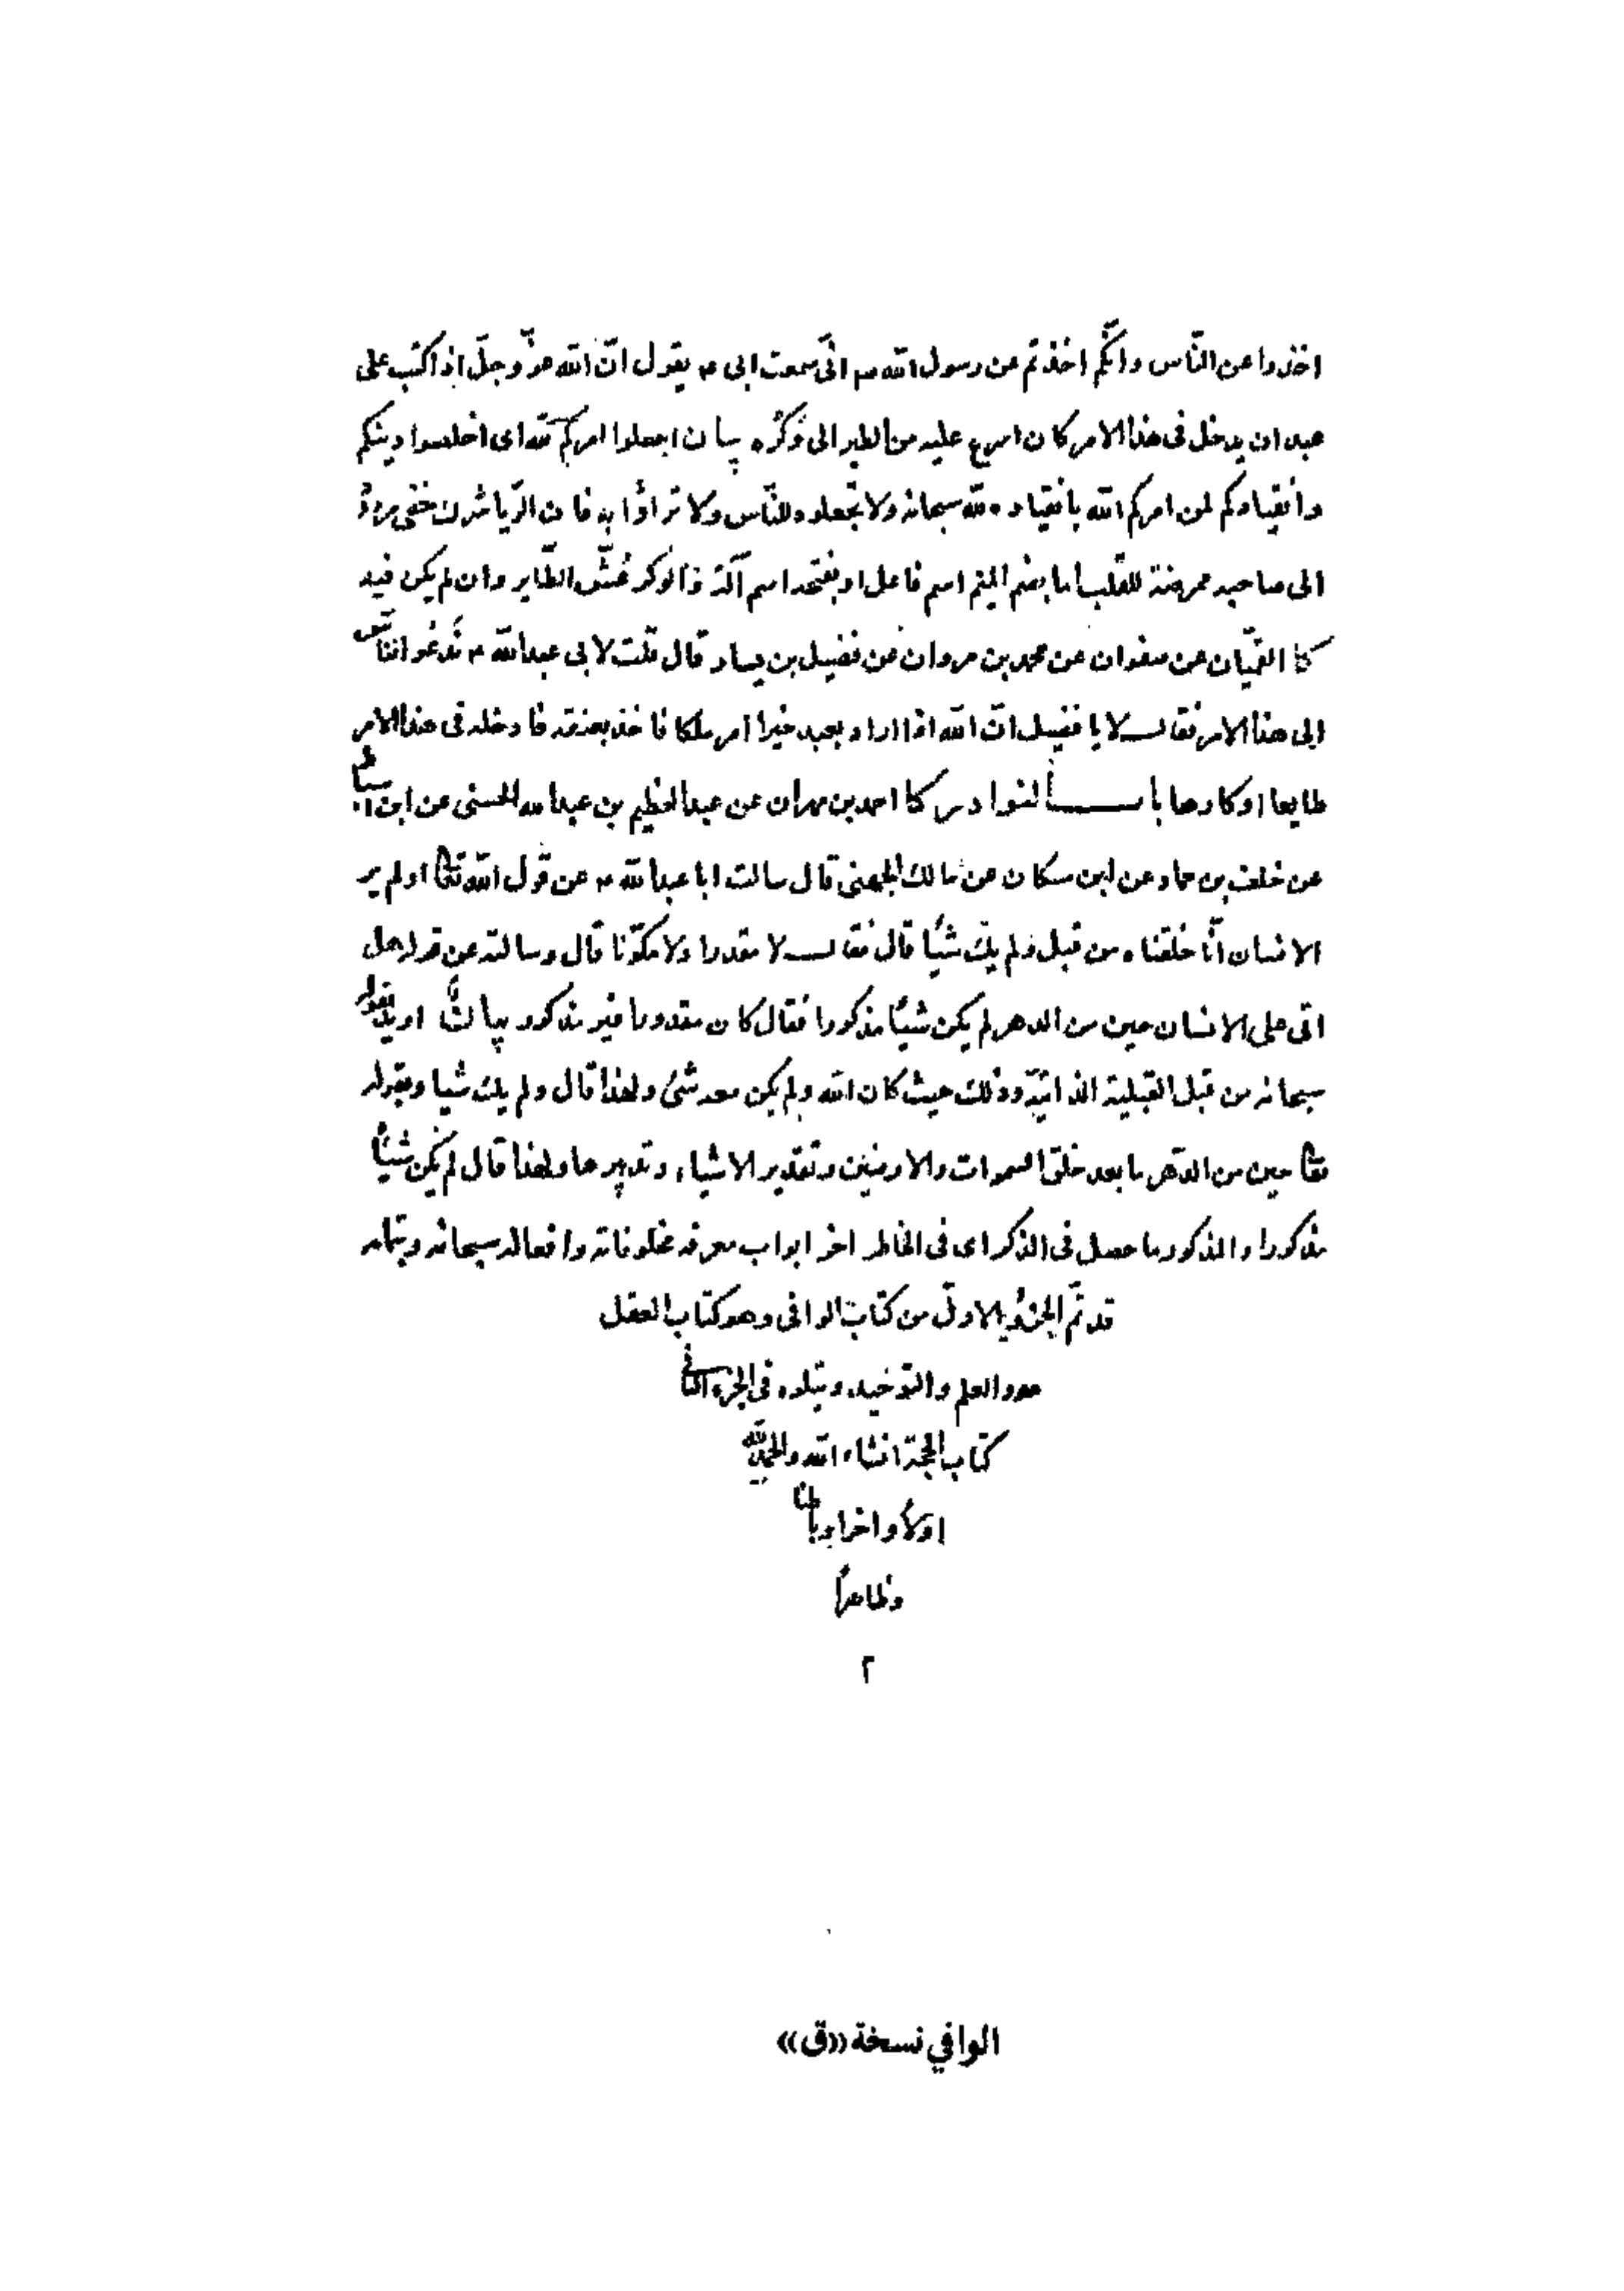 اخذوا عن النّاس وانّكم اخذتم عن رسول الله ص انّى سمعت ابى ع يقول انّ الله عزّ وجلّ اذا كتب على
عبد ان يدخل فى هذا الامر كان اسرع عليه من الطير الى وَكْرِه بيان اجعلوا امركم لله اى اخلصوا دينكم
وانقيادكم لمن امركم الله بانقياده لله سبحانه ولا تجعلوه للنّاس ولا تراؤا به فان الرّيا شرك خفى
الى صاحبه ممرضة للقلب اما بضم الميم اسم فاعل او بفتحه اسم آلة والوكر عُشّ الطّاير وان لم يكن فيه
كا القميّان عن صفوان عن محمد بن مروان عن فضيل بن يسار قال قلت لابى عبدالله ع نَدعُوا النّاس
الى هذا الامر فقال لا يا فضيل انّ الله اذا اراد بعبد خيرا امر ملكا فاخذ بعنقه فادخله فى هذا الامر
طايعا او كارها باب النوادر كا احمد بن مهران عن عبدالعظيم بن عبدالله الحسنى عن ابن اسباط
عن خلف بن حماد عن ابن مسكان عن مالك الجهنى قال سالت ابا عبدالله ع عن قول الله تعالى اولم ير
الانسان انّا خلقناه من قبل ولم يك شيئًا قال فقال لا مقدرا ولا مكوّنا قال وسالته عن قوله هل
اتى على الانسان حين من الدهر لم يكن شيئًا مذكورا فقال كان مقدورا غير مذكور بيان اريد بقوله
سبحانه من قبل القبلية الذاتيّة وذلك حيث كان الله ولم يكن معه شئ ولهذا قال ولم يك شيا وبقوله
تعالى حين من الدّهر ما بعد خلق السموات والارضين وتقدير الاشياء وتدبيرها ولهذا قال لم يكن شيئًا
مذكورا والمذكور ما حصل فى الذكر اى فى الخاطر اخر ابواب معرفة مخلوقاته وافعاله سبحانه وبتمامه
قد تمّ الجزُؤ الاول من كتاب الوافى وهو كتاب العقل
والعلم والتوحيد ويتلوه فى الجزء الثانى
كتاب الحجة انشاء الله والحمد لله
اولاً واخرا وباطنا
وظاهراً
٢
الوافي نسخة «ق»